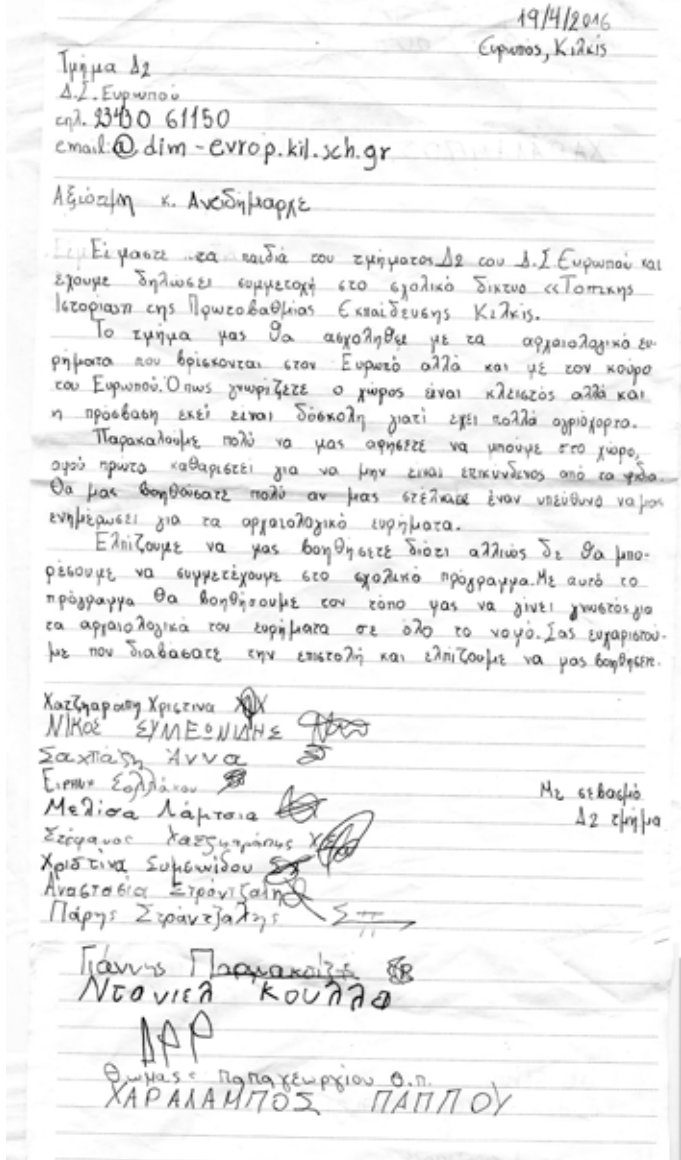 19/4/2016
Ευρωπός, Κιλκίς
Τμήμα Δ2
Δ.Σ. Ευρωπού
τηλ. 23430 61150
email:@ dim-evrop.kil.sch.gr
Αξιότιμη κ. Αντιδήμαρχε
Είμαστε τα παιδιά του τμήματος Δ2 του Δ.Σ. Ευρωπού και
έχουμε δηλώσει συμμετοχή στο σχολικό δικτυο «Τοπικης
Ιστορίας» της Πρωτοβαθμίας Εκπαίδευσης Κιλκίς.
Το τμήμα μας θα ασχοληθεί με τα αρχαιολογικά ευ-
ρήματα που βρίσκονται στον Ευρωπό αλλά και με τον κούρο
του Ευρωπού. Όπως γνωρίζετε ο χώρος είναι κλειστός αλλά και
η πρόσβαση εκεί είναι δύσκολη γιατί εχει πολλά αγριόχορτα.
Παρακαλούμε πολύ να μας αφησετε να μπούμε στο χώρο,
αφού πρωτα καθαριστεί για να μην ειναι επικύνδενος από τα φιδα.
Θα μας βοηθούσατε πολύ αν μας στέλνατε έναν υπεύθυνο να μας
ενημέρωσει για τα αρχαιολογικά ευρήματα.
Ελπίζουμε να μας βοηθήσετε διότι αλλιώς δε θα μπο-
ρέσουμε να συμμετέχουμε στο σχολικό πρόγραμμα. Με αυτό το
πρόγραμμα θα βοηθήσουμε τον τόπο μας να γίνει γνωστός για
τα αρχαιολογικά του ευρήματα σε όλο το νομό. Σας ευχαριστού-
με που διαβασατε την επιστολή και ελπίζουμε να μας βοηθησετε.
Χατζηαραπη Χριστινα
ΝΙΚΟΣ ΣΥΜΕΩΝΙΔΗΣ
Σαχπάζη Άννα
Ειρηνη Σολλάκου
Με σεβασμό
Μελίσα Λάμτσια
Δ2 τμήμα
Στέφανος Χατζηαράπης
Χριστίνα Συμεωνίδου
Αναστασία Στράντζαλη
Πάρης Στράντζαλης
Γιάννης
Ντανιελ Κούλλα
Θωμάς Παπαγεωργίου Θ.π.
ΧΑΡΑΛΑΜΠΟΣ ΠΑΠΠΟΥ